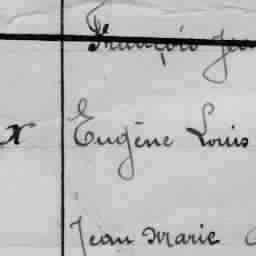 François Jea
x Eugène Louis
Jean Marie